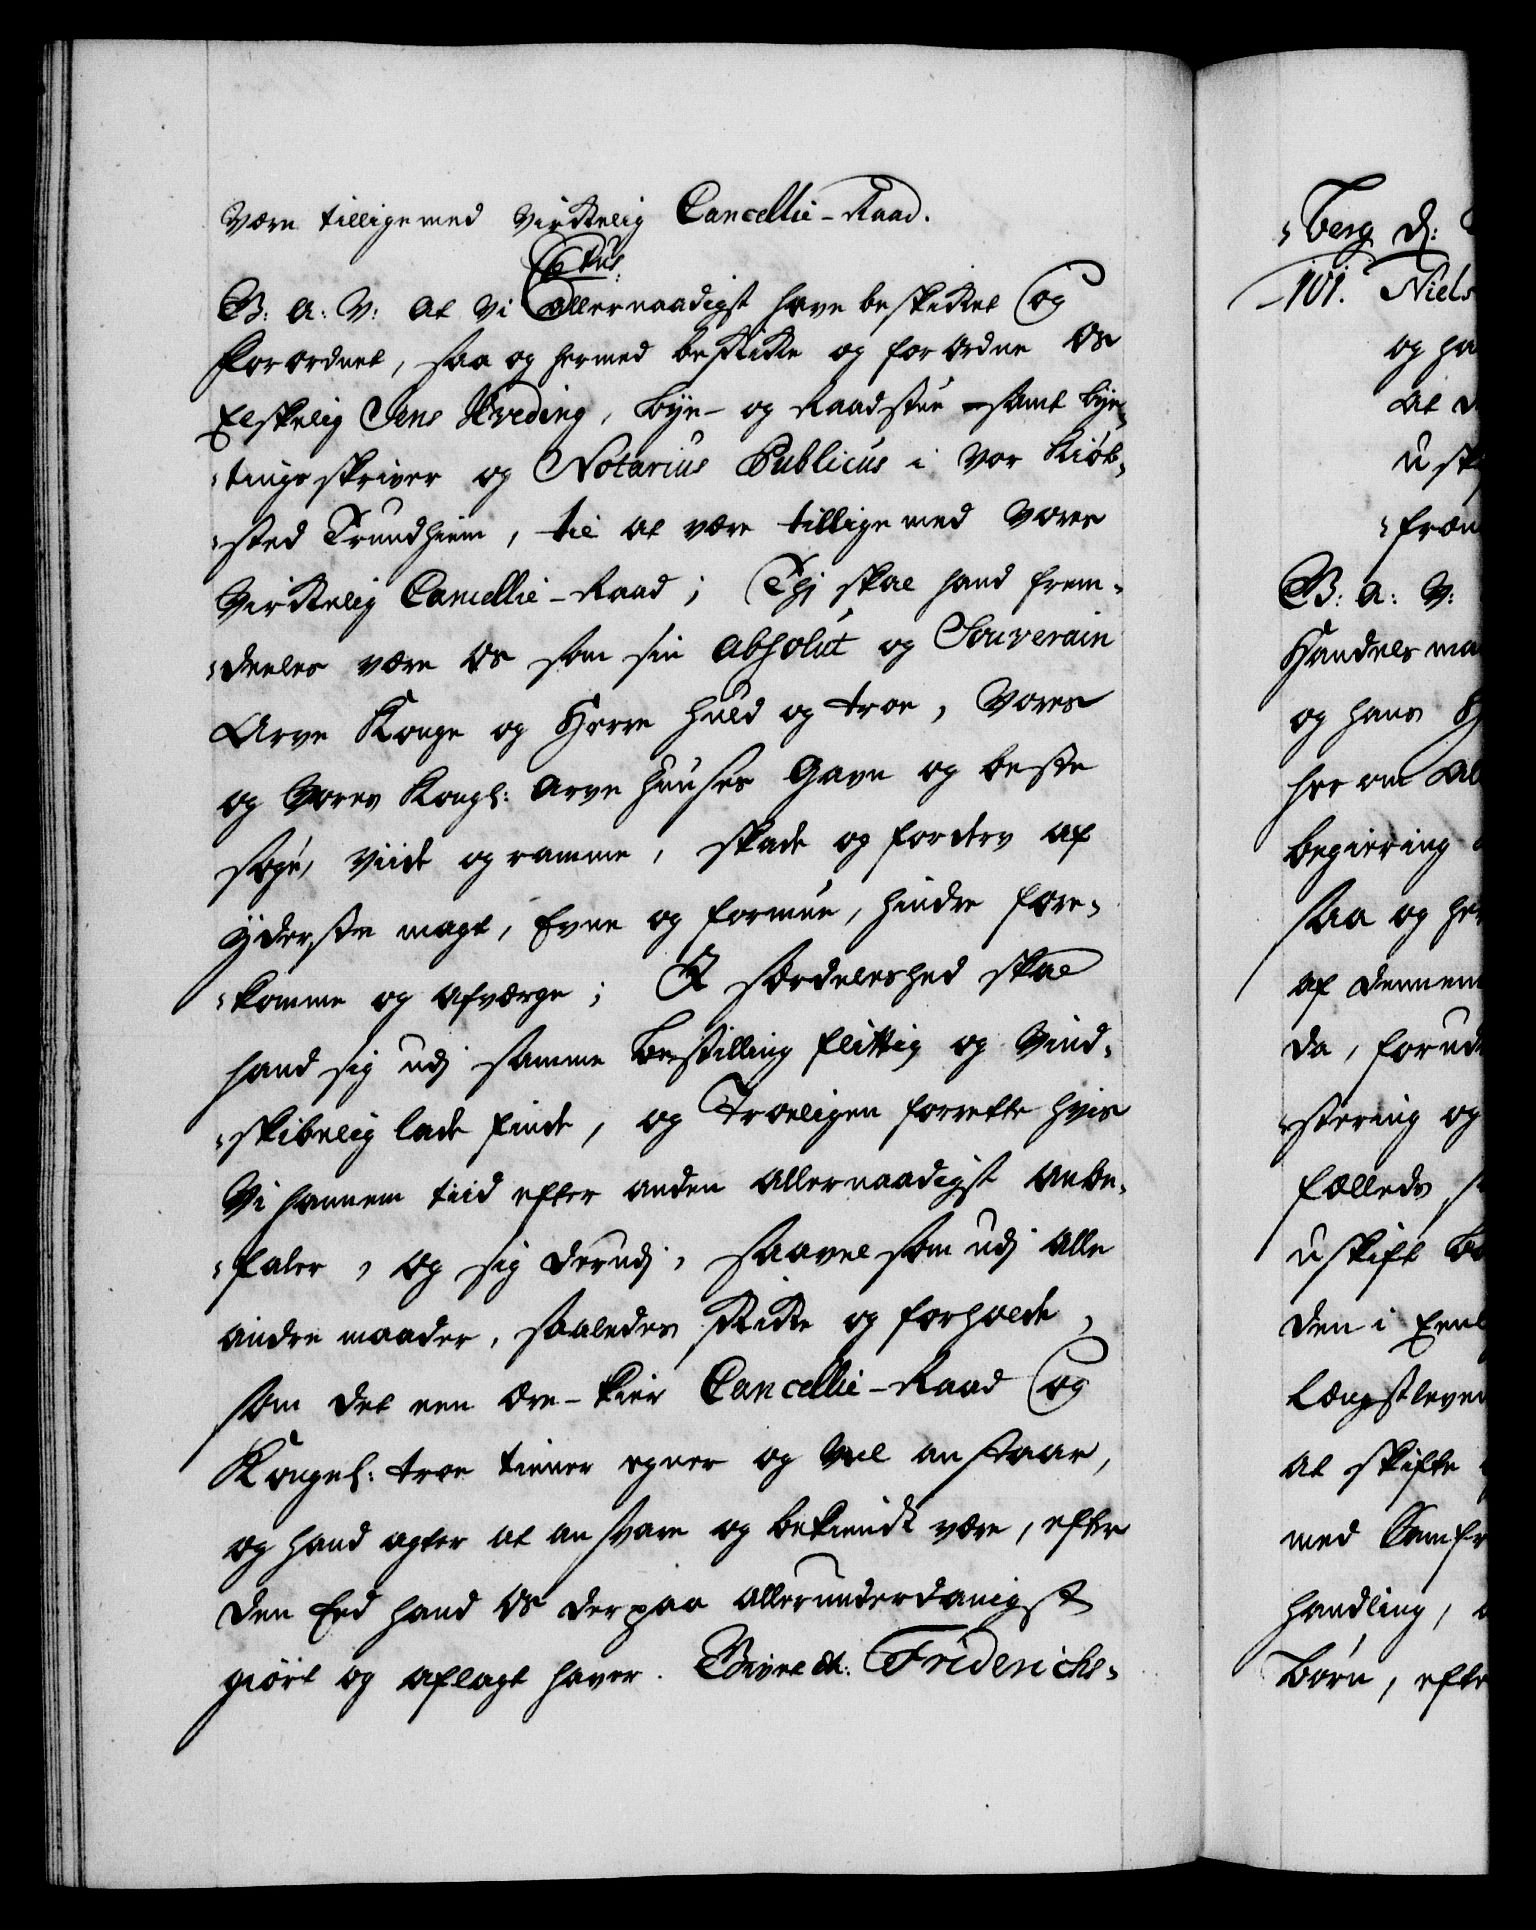 være tillige med Virkelig Cancellie-Raad.
B: A: V: at Vi Allernaadigst have beskikket og
forordnet, saa og hermed beskikke og forordne Os
Elskelig Jens Hveding, Bye- og Raadstue- samt bye-
-tingsskriver og Notarius Publicus i Vor Kiøb-
-sted Trundhiem, til at være tillige med Vores
Virkelig Cancellie-Raad; Thj skal hand frem-
-deeles være Os som sin Absolut og Souverain
Arve Konge og Herre huld og troe, Vores
og Vores Kongl: Arve Huuses Gavn og beste
søge, viide og ramme, skade og forderv af
yderste magt, Evne og formue, hindre fore-
-komme og afværge; I særdeleshed skal
hand sig udj samme Bestilling flittig og Vind-
-skibelig lade finde, og Troeligen forrette hvis
Vi hannem tiid efter anden allernaadigst anbe-
-faler, og sig derudj, saavelsom udj alle
andre maader, saaledes skikke og forholde,
som det een ære-kier Cancellie-Raad og
Kongel: troe tiener egner og vel anstaar,
og hand agter at ansvare og bekiendt være, efter
den Eed hand Os derpaa allerunderdanigst
giort og aflagt haver. Friderichs-
-berg d:
101. Niels
og ha
at
u sk
B: A: V:
Handels ma
og hans
her om al
begiering
saa og her
af dennem
da, forud
-stering og
fælleds
uskift Bo
den i Eenl
længstleven
at skifte
med Samfr
handling,
Børn, efte